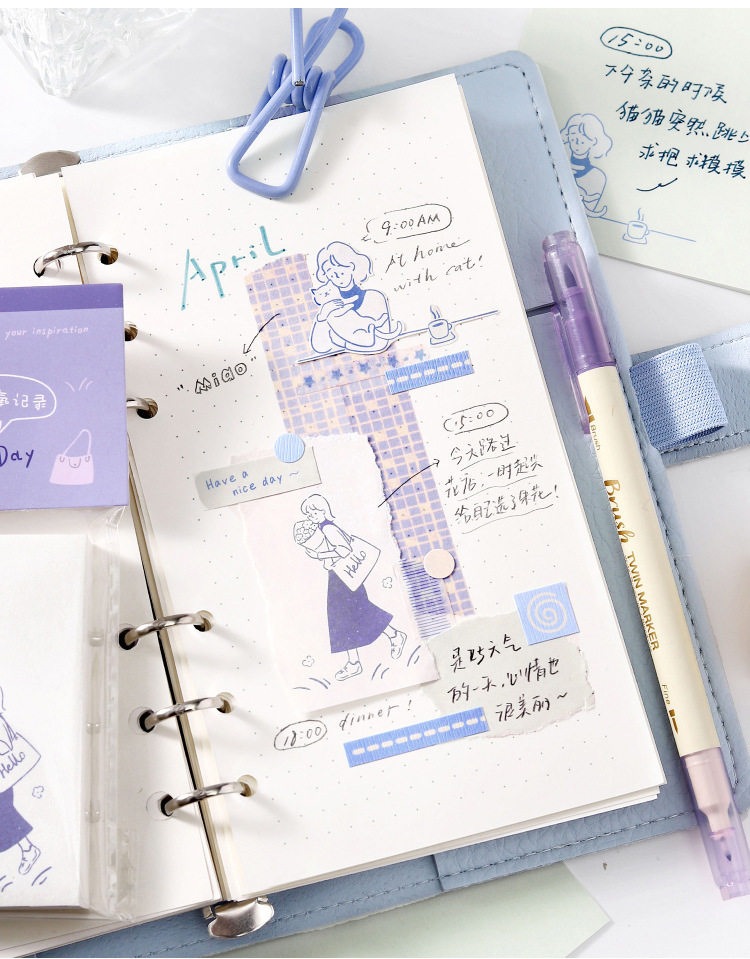 15:00
下午茶的时候
猫猫突然跳上
求抱 求摸摸
April
9:00AM
At home
with cat!
"Miao"
your inspiration
记录
Day
Have a
nice day~
Hello
15:00
今天路过
花店,一时起兴
给自己选了束花!
是晴天气
的一天,心情也
很美丽~
18:00 dinner!
Hello
Brush
Brush
TWIN MARKER
Fine